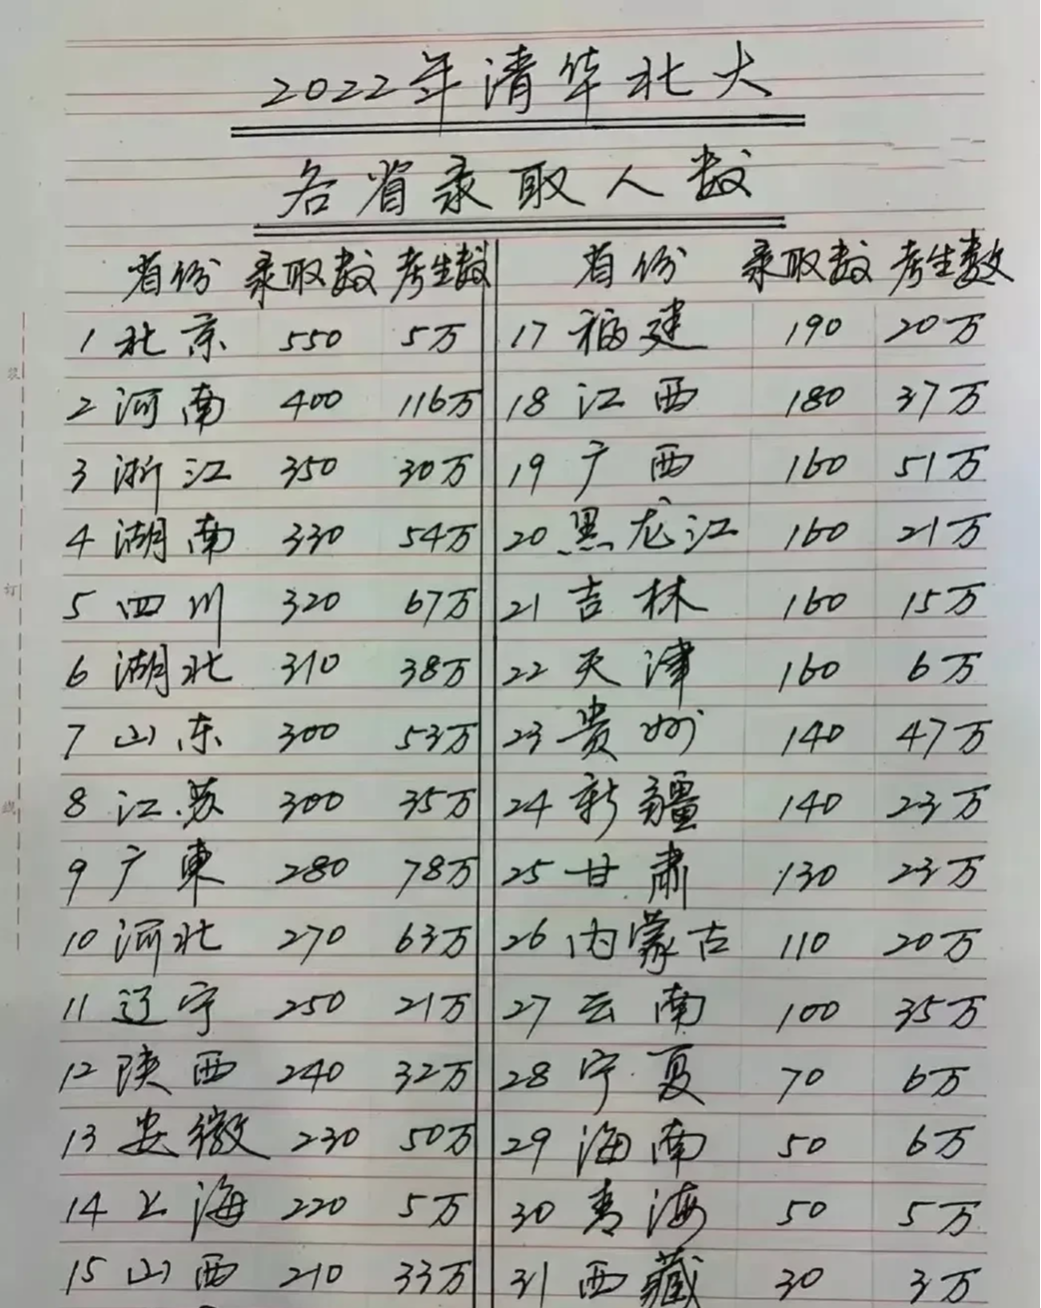 2022年清华北大
各省录取人数
省份 录取数 考生数 省份 录取数 考生数
1 北京 550 5万 17 福建 190 20万
2 河南 400 116万 18 江西 180 37万
3 浙江 350 30万 19 广西 160 51万
4 湖南 330 54万 20 黑龙江 160 21万
5 四川 320 67万 21 吉林 160 15万
6 湖北 310 38万 22 天津 160 6万
7 山东 300 53万 23 贵州 140 47万
8 江苏 300 35万 24 新疆 140 23万
9 广東 280 78万 25 甘肃 130 23万
10 河北 270 63万 26 内蒙古 110 20万
11 辽宁 250 21万 27 云南 100 35万
12 陕西 240 32万 28 宁夏 70 6万
13 安徽 230 50万 29 海南 50 6万
14 上海 220 5万 30 青海 50 5万
15 山西 210 33万 31 西藏 30 3万
装
订
线